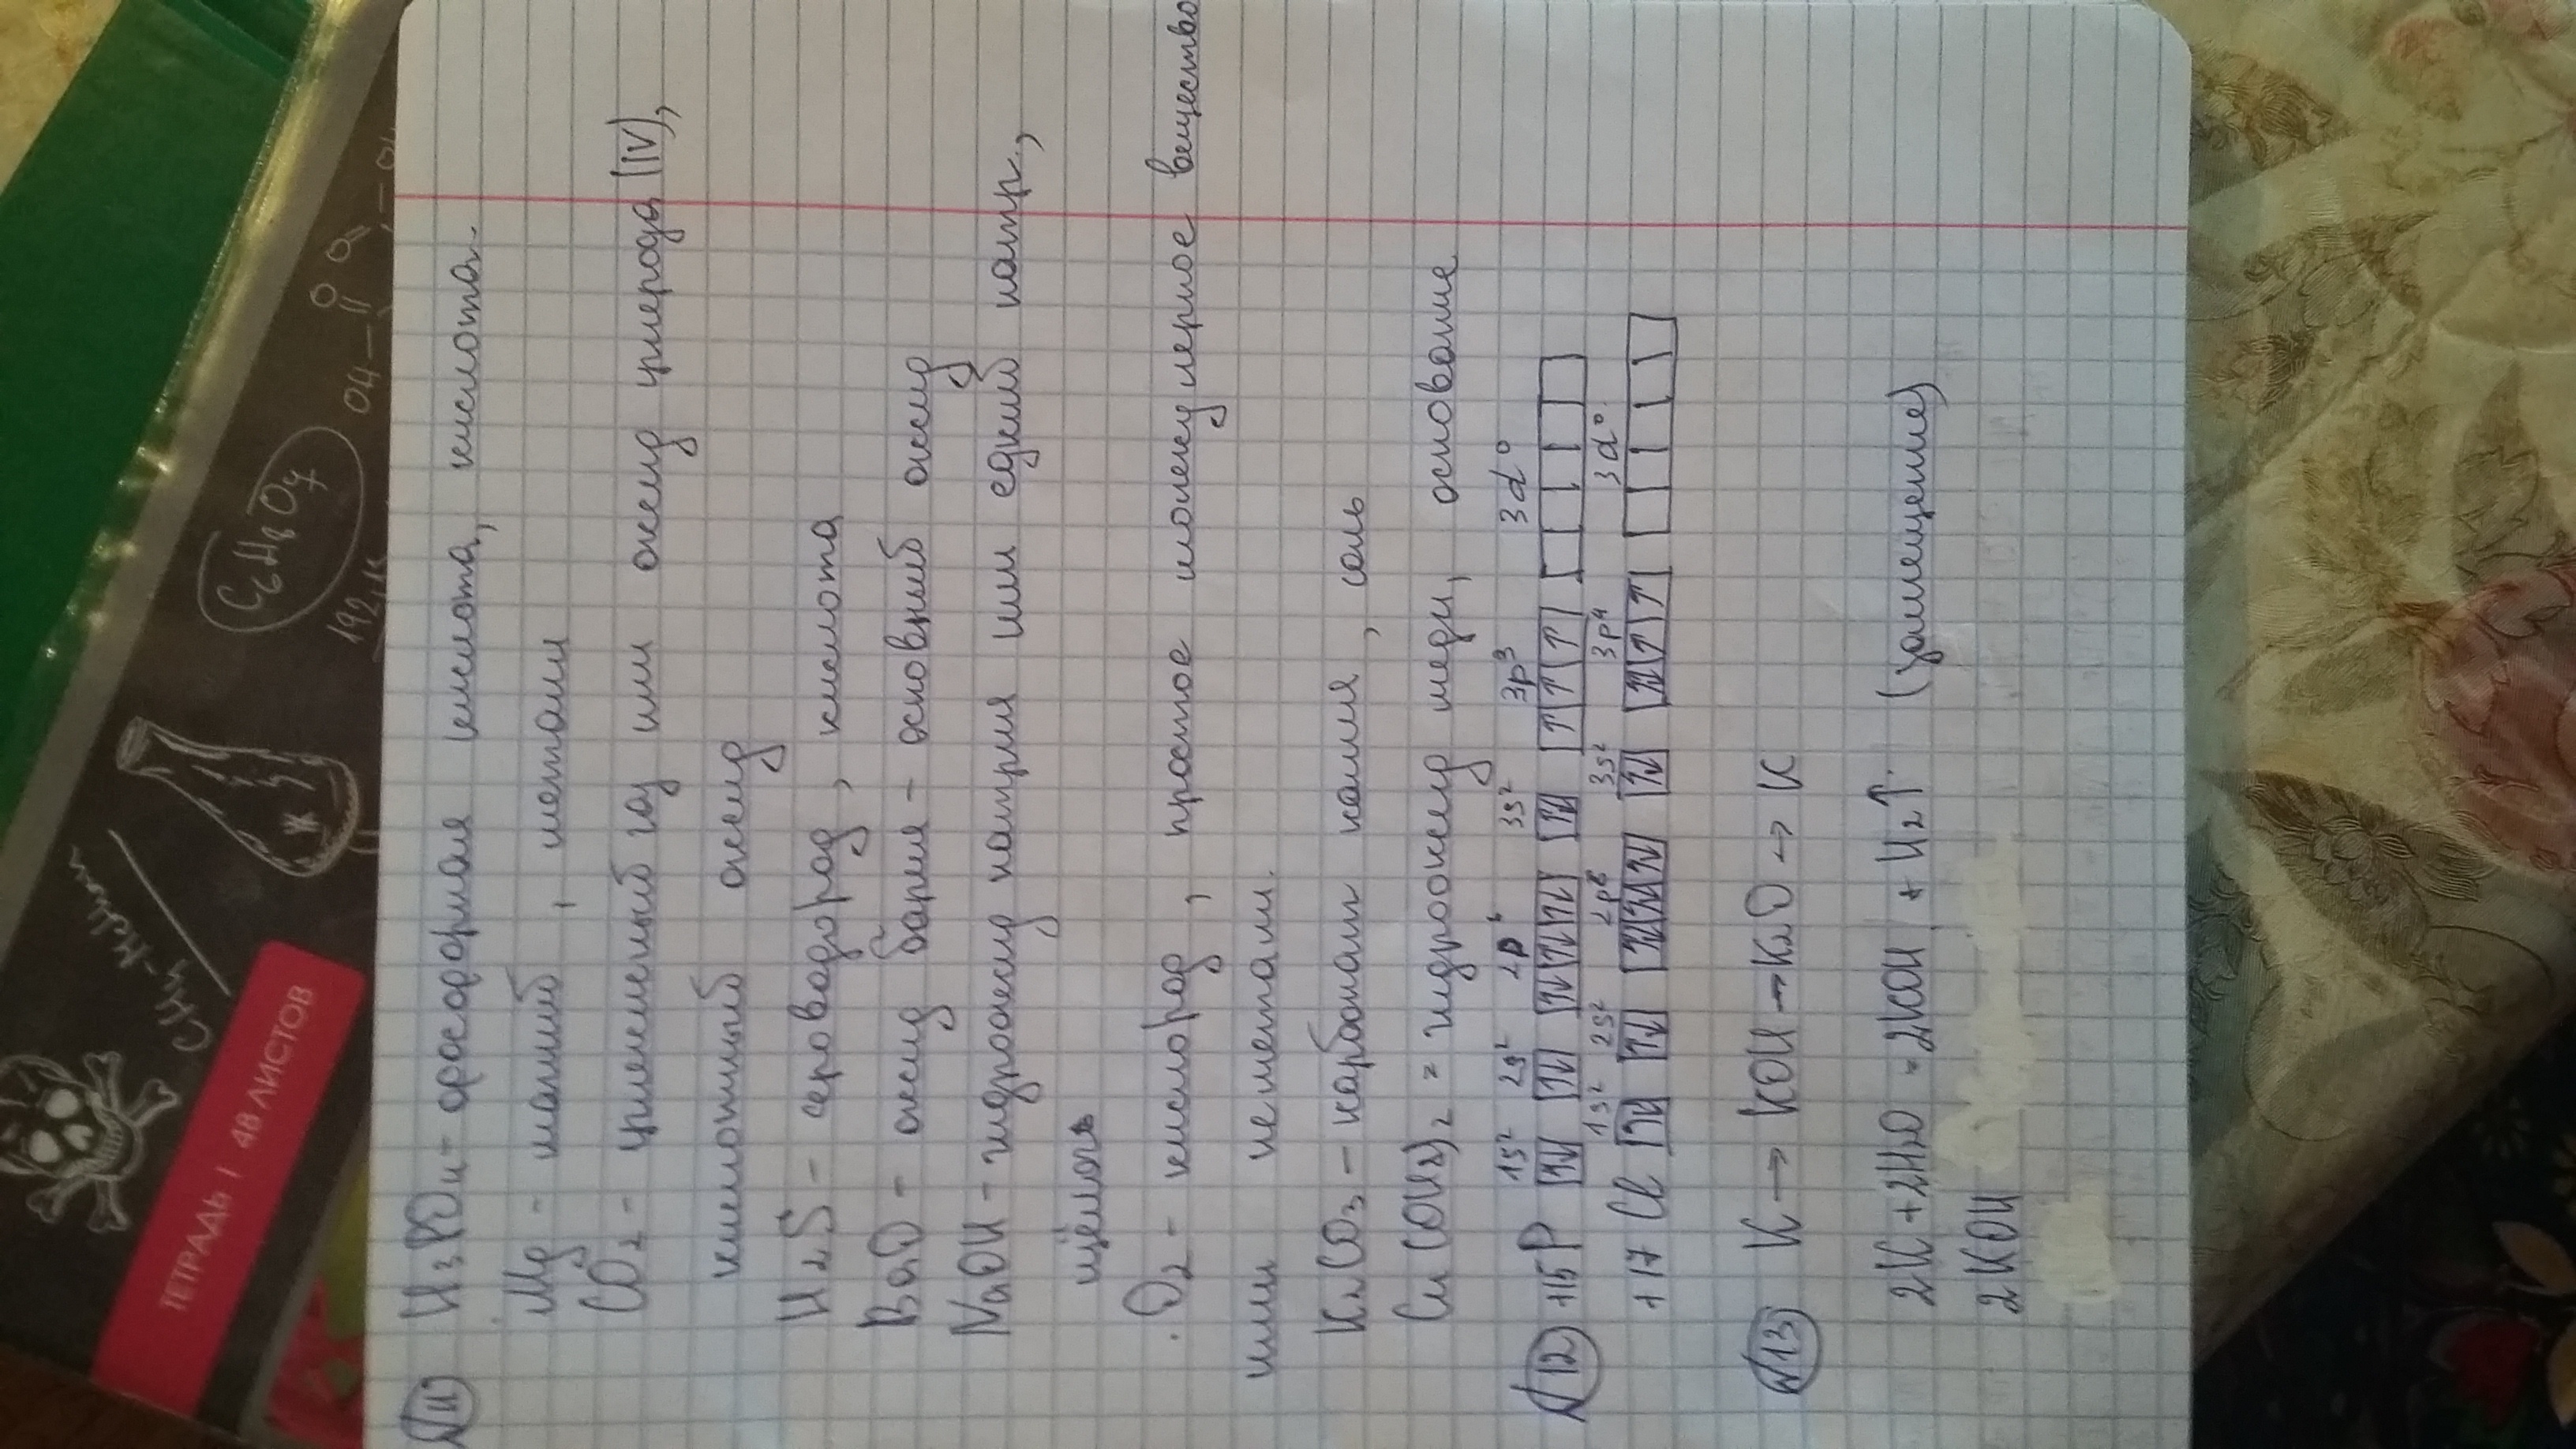 №11 H3PO4 - фосфорная кислота, кислота.
Mg - магний, металл
CO2 - углекислый газ или оксид углерода (IV),
кислотный оксид
H2S - сероводород, кислота
BaO - оксид бария - основный оксид
NaOH - гидроксид натрия или едкий натр.,
щёлочь
O2 - кислород, простое молекулярное вещество
или неметалл.
K2CO3 - карбонат калия, соль
Cu(OH)2 = гидрооксид меди, основание
1s2 2s2 2p6 3s2 3p3 3d0
№12 +15 P
1s2 2s2 2p6 3s2 3p4 3d0.
+17 Cl
№13 K → KOH → K2O → K
2K + 2H2O = 2KOH + H2↑ (замещение)
2KOH
ТЕТРАДЬ | 48 ЛИСТОВ
C6H8O7